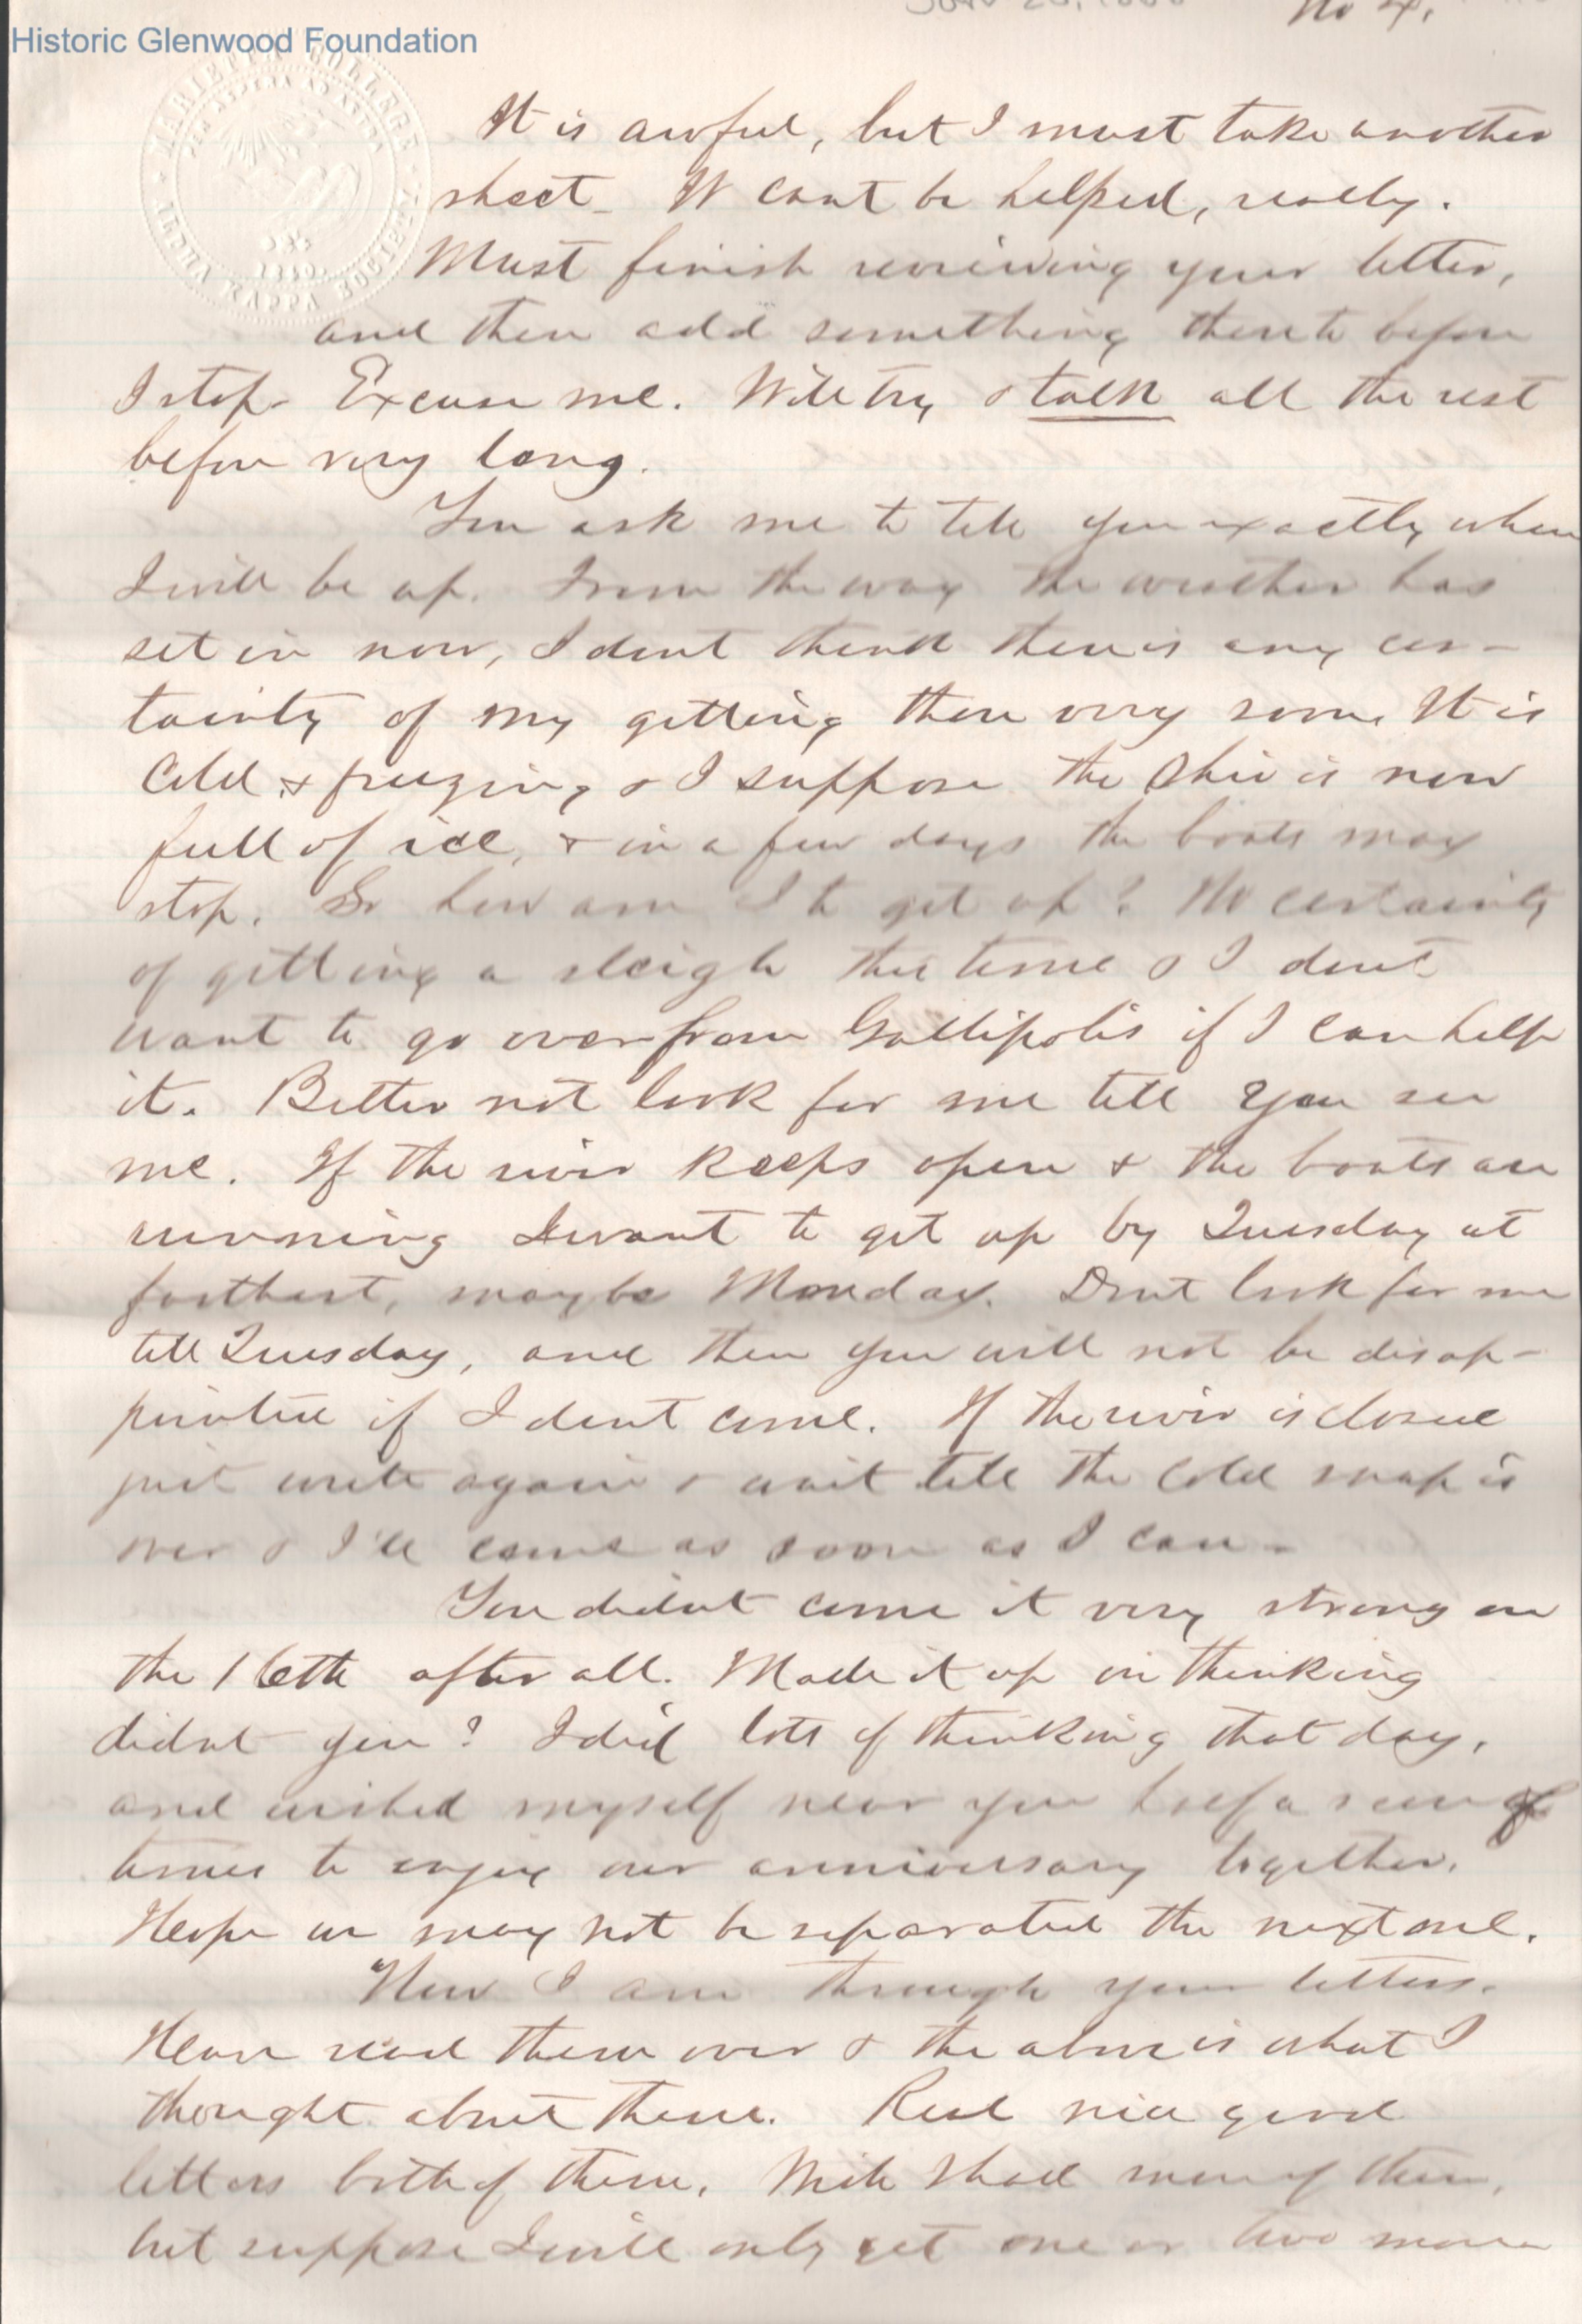 No 4.
Historic Glenwood Foundation
MARIETTA COLLEGE
PER ASPERA AD ASTRA
1840.
ALPHA KAPPA SOCIETY
It is awful, but I must take another
sheet - It cant be helped, really.
Must finish reviewing your letter,
and then add something thereto before
I stop - Excuse me. Will try & talk all the rest
before very long.
You ask me to tell you exactly when
I will be up. From the way the weather has
set in now, I dont think there is any cer-
tainty of my getting there very soon. It is
Cold & freezing & I suppose the Ohio is now
full of ice, & in a few days the boats may
stop. So how am I to get up? No certainty
of getting a sleigh this time & I dont
want to go over from Gallipolis if I can help
it. Better not look for me till you see
me. If the river keeps open & the boats are
running I want to get up by Tuesday at
farthest, maybe Monday. Dont look for me
till Tuesday, and then you will not be disap-
pointed if I dont come. If the river is closed
just write again & wait till the cold snap is
over & I'll come as soon as I can -
You didnt come it very strong on
the 16th after all. Made it up in thinking
didnt you? I did lots of thinking that day,
and wished myself near you half a
times to enjoy our anniversary together.
Hope we may not be separated the next one.
Now I am through your letters.
Have read them over & the above is what I
thought about them. Real nice good
letters both of them. Wish I had more of them,
but suppose I will only get one or two more